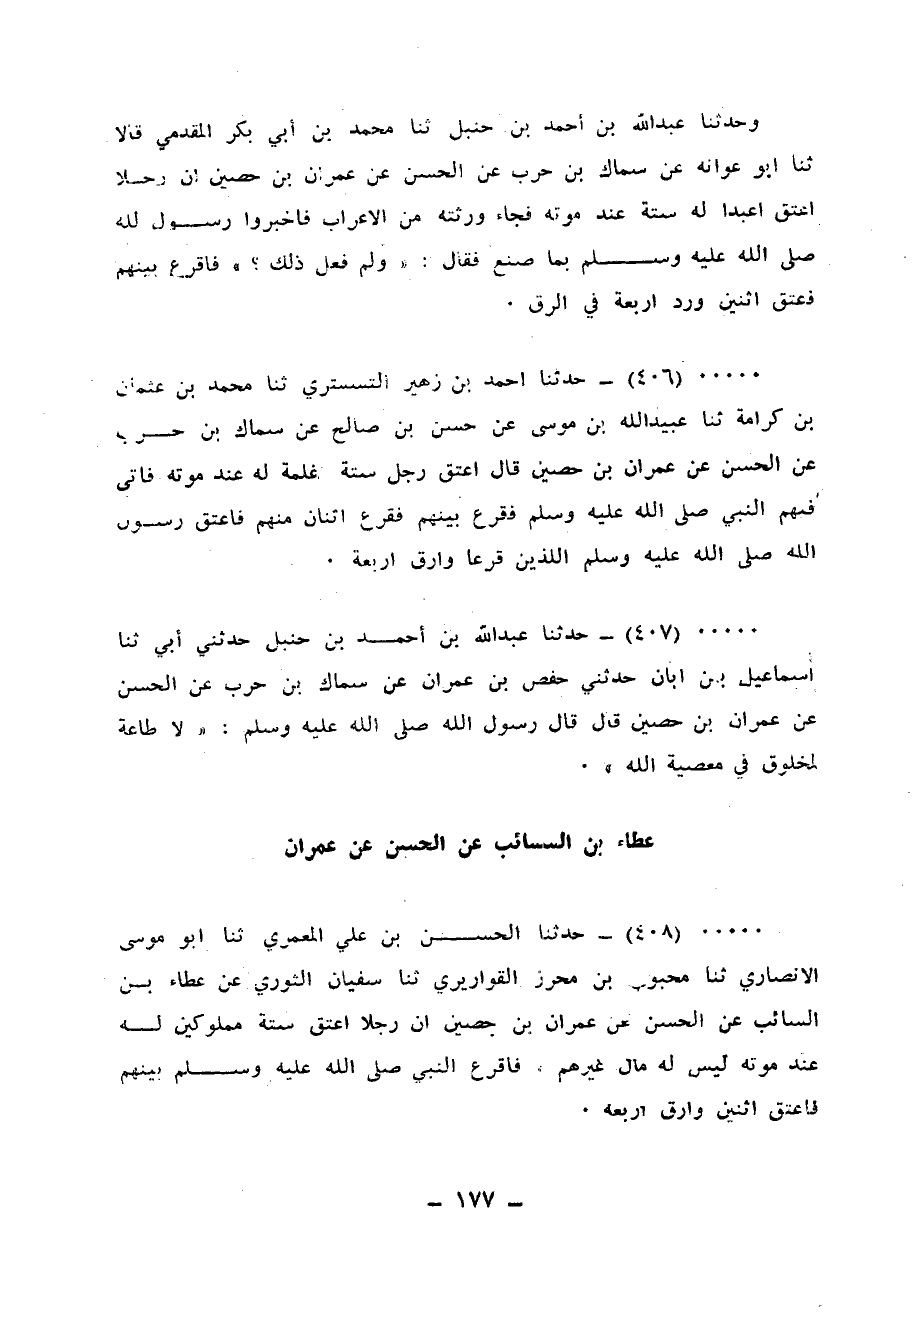 وحدثنا عبدالله بن أحمد بن حنبل ثنا محمد بن أبي بكر المقدمي قالا
ثنا ابو عوانه عن سماك بن حرب عن الحسن عن عمران بن حصين ان رجلا
اعتق اعبدا له ستة عند موته فجاء ورثته من الاعراب فاخبروا رسول لله
صلى الله عليه وسلم بما صنع فقال : « ولم فعل ذلك ؟ » فاقرع بينهم
فعتق اثنين ورد اربعة في الرق ٠
٠٠٠٠٠ (٤٠٦) ـ حدثنا احمد بن زهير التستري ثنا محمد بن عثمان
بن كرامة ثنا عبيدالله بن موسى عن حسن بن صالح عن سماك بن حرب
عن الحسن عن عمران بن حصين قال اعتق رجل ستة غلمة له عند موته فاتى
فيهم النبي صلى الله عليه وسلم فقرع بينهم فقرع اثنان منهم فاعتق رسول
الله صلى الله عليه وسلم اللذين قرعا وارق اربعة ٠
٠٠٠٠٠ (٤٠٧) ـ حدثنا عبدالله بن أحمد بن حنبل حدثني أبي ثنا
أسماعيل بن ابان حدثني حفص بن عمران عن سماك بن حرب عن الحسن
عن عمران بن حصين قال قال رسول الله صلى الله عليه وسلم : « لا طاعة
لمخلوق في معصية الله » ٠
عطاء بن السائب عن الحسن عن عمران
٠٠٠٠٠ (٤٠٨) ـ حدثنا الحسن بن علي المعمري ثنا ابو موسى
الانصاري ثنا محبوب بن محرز القواريري ثنا سفيان الثوري عن عطاء بن
السائب عن الحسن عن عمران بن حصين ان رجلا اعتق ستة مملوكين له
عند موته ليس له مال غيرهم ، فاقرع النبي صلى الله عليه وسلم بينهم
فاعتق اثنين وارق اربعه ٠
ـ ١٧٧ ـ